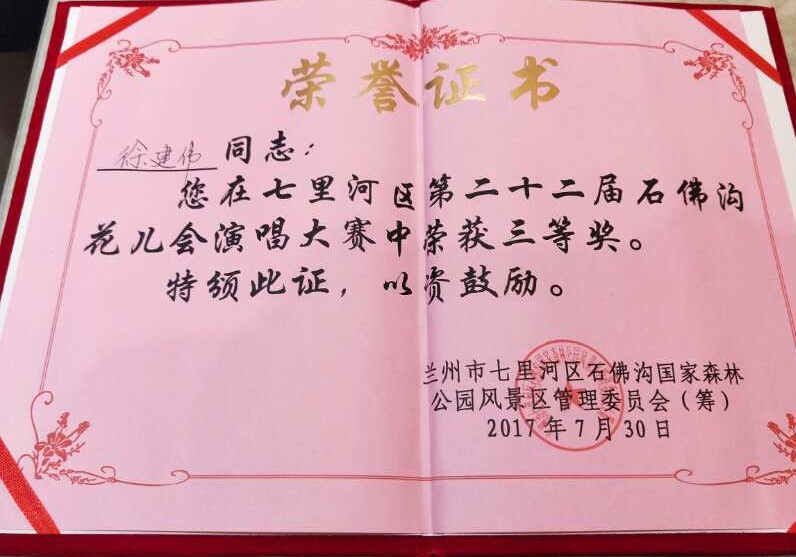 荣誉证书
徐建伟 同志：
您在七里河区第二十二届石佛沟
花儿会演唱大赛中荣获三等奖。
特须此证，以资鼓励。
兰州市七里河区石佛沟国家森林
公园风景区管理委员会（筹）
2017年7月30日